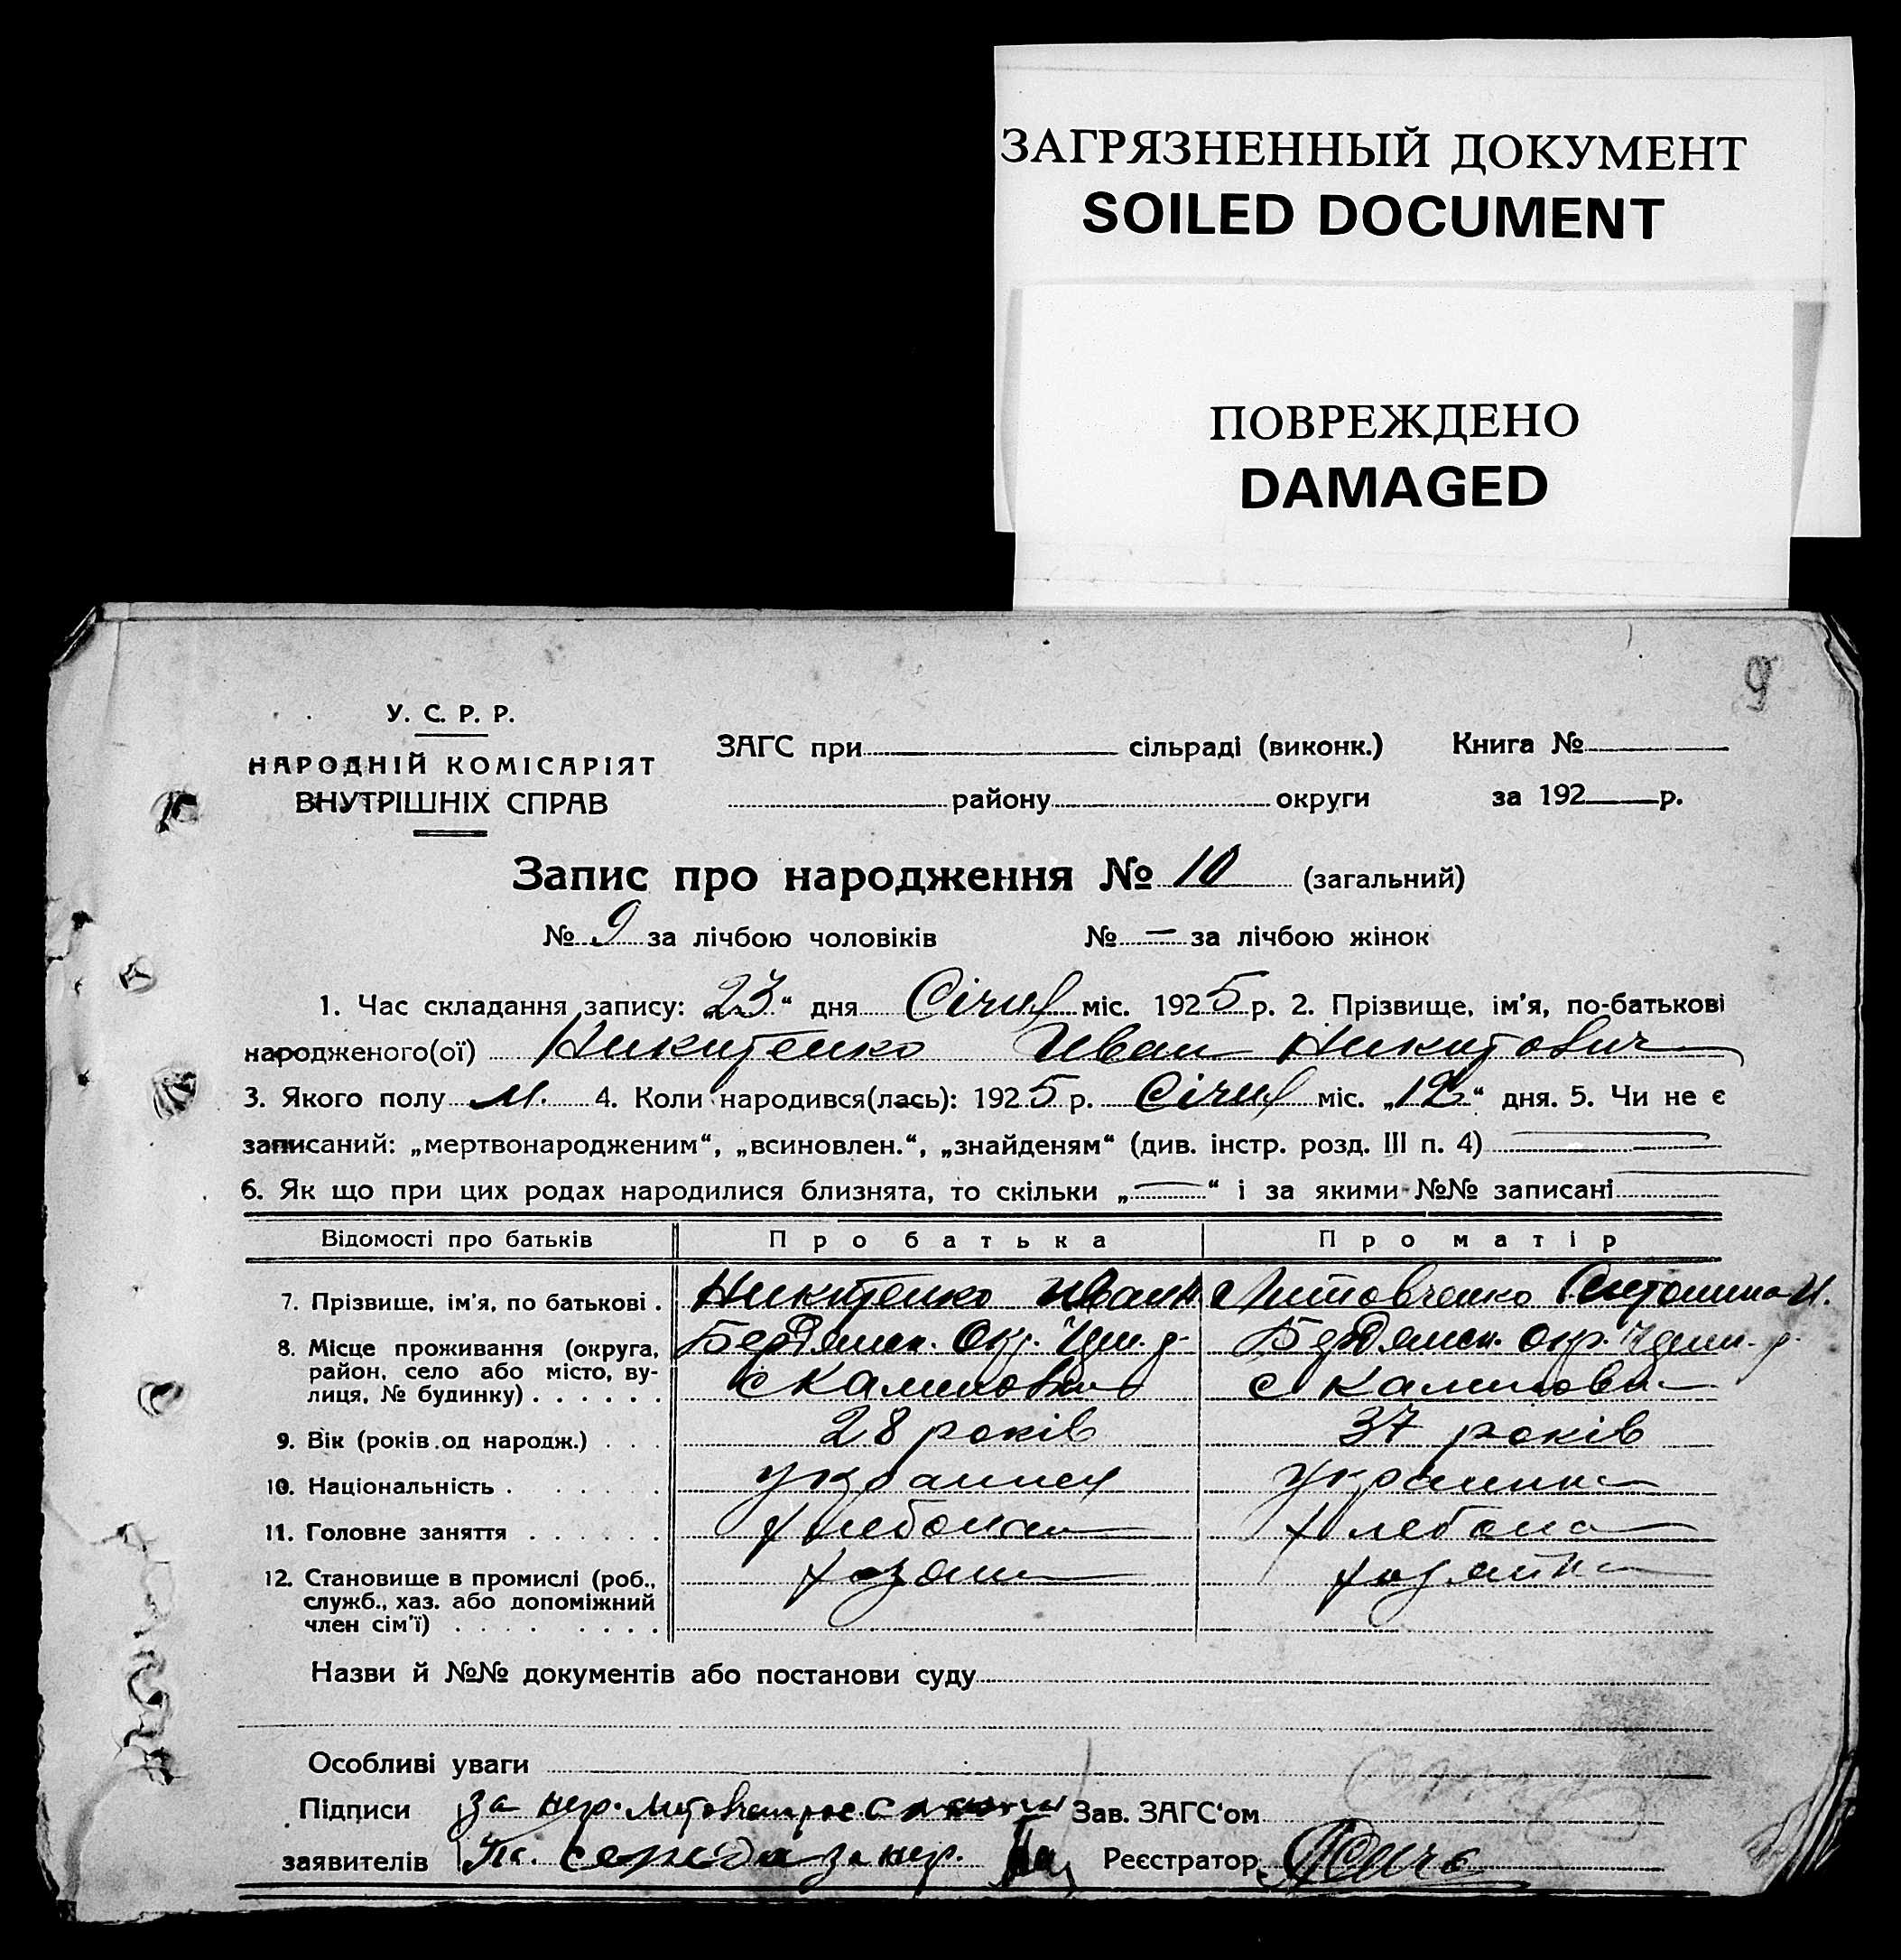 ЗАГРЯЗНЕННЫЙ ДОКУМЕНТ
SOILED DOCUMENT
ПОВРЕЖДЕНО
DAMAGED
9
У. С. Р. Р.
НАРОДНІЙ КОМІСАРІЯТ
ВНУТРІШНІХ СПРАВ
ЗАГС при сільраді (виконк.) Книга №
району округи за 192 р.
Запис про народження № 10 (загальний)
№ 9 за лічбою чоловіків № — за лічбою жінок
1. Час складання запису: „23“ дня Січня міс. 1925 р. 2. Прізвище, ім'я, по-батькові
народженого(ої) Никитенко Иван Никитович
3. Якого полу м. 4. Коли народився(лась): 1925 р. Січня міс. „12“ дня. 5. Чи не є
записаний: „мертвонародженим“, „всиновлен.“, „знайденям“ (див. інстр. розд. III п. 4) —
6. Як що при цих родах народилися близнята, то скільки „—“ і за якими №№ записані —
Відомості про батьків Про батька Про матір
7. Прізвище, ім'я, по батькові . Никитенко Иван Н. Литовченко Антонина И.
8. Місце проживання (округа, Бердянск. Окр. р. Бердянск. Окр. р.
район, село або місто, ву-
лиця, № будинку) . . . . . . с Калиновка с Калиновка
9. Вік (років од народж.) . . . 28 років 37 років
10. Національність . . . . . . українец українка
11. Головне заняття . . . . . . хлебопаш хлебопа
12. Становище в промислі (роб., хозяин хозяйка
служб., хаз. або допоміжний
член сім'ї) . . . . . . . .
Назви й №№ документів або постанови суду
Особливі уваги
Підписи за нер. Зав. ЗАГС'ом
заявителів середа за нер. Реєстратор